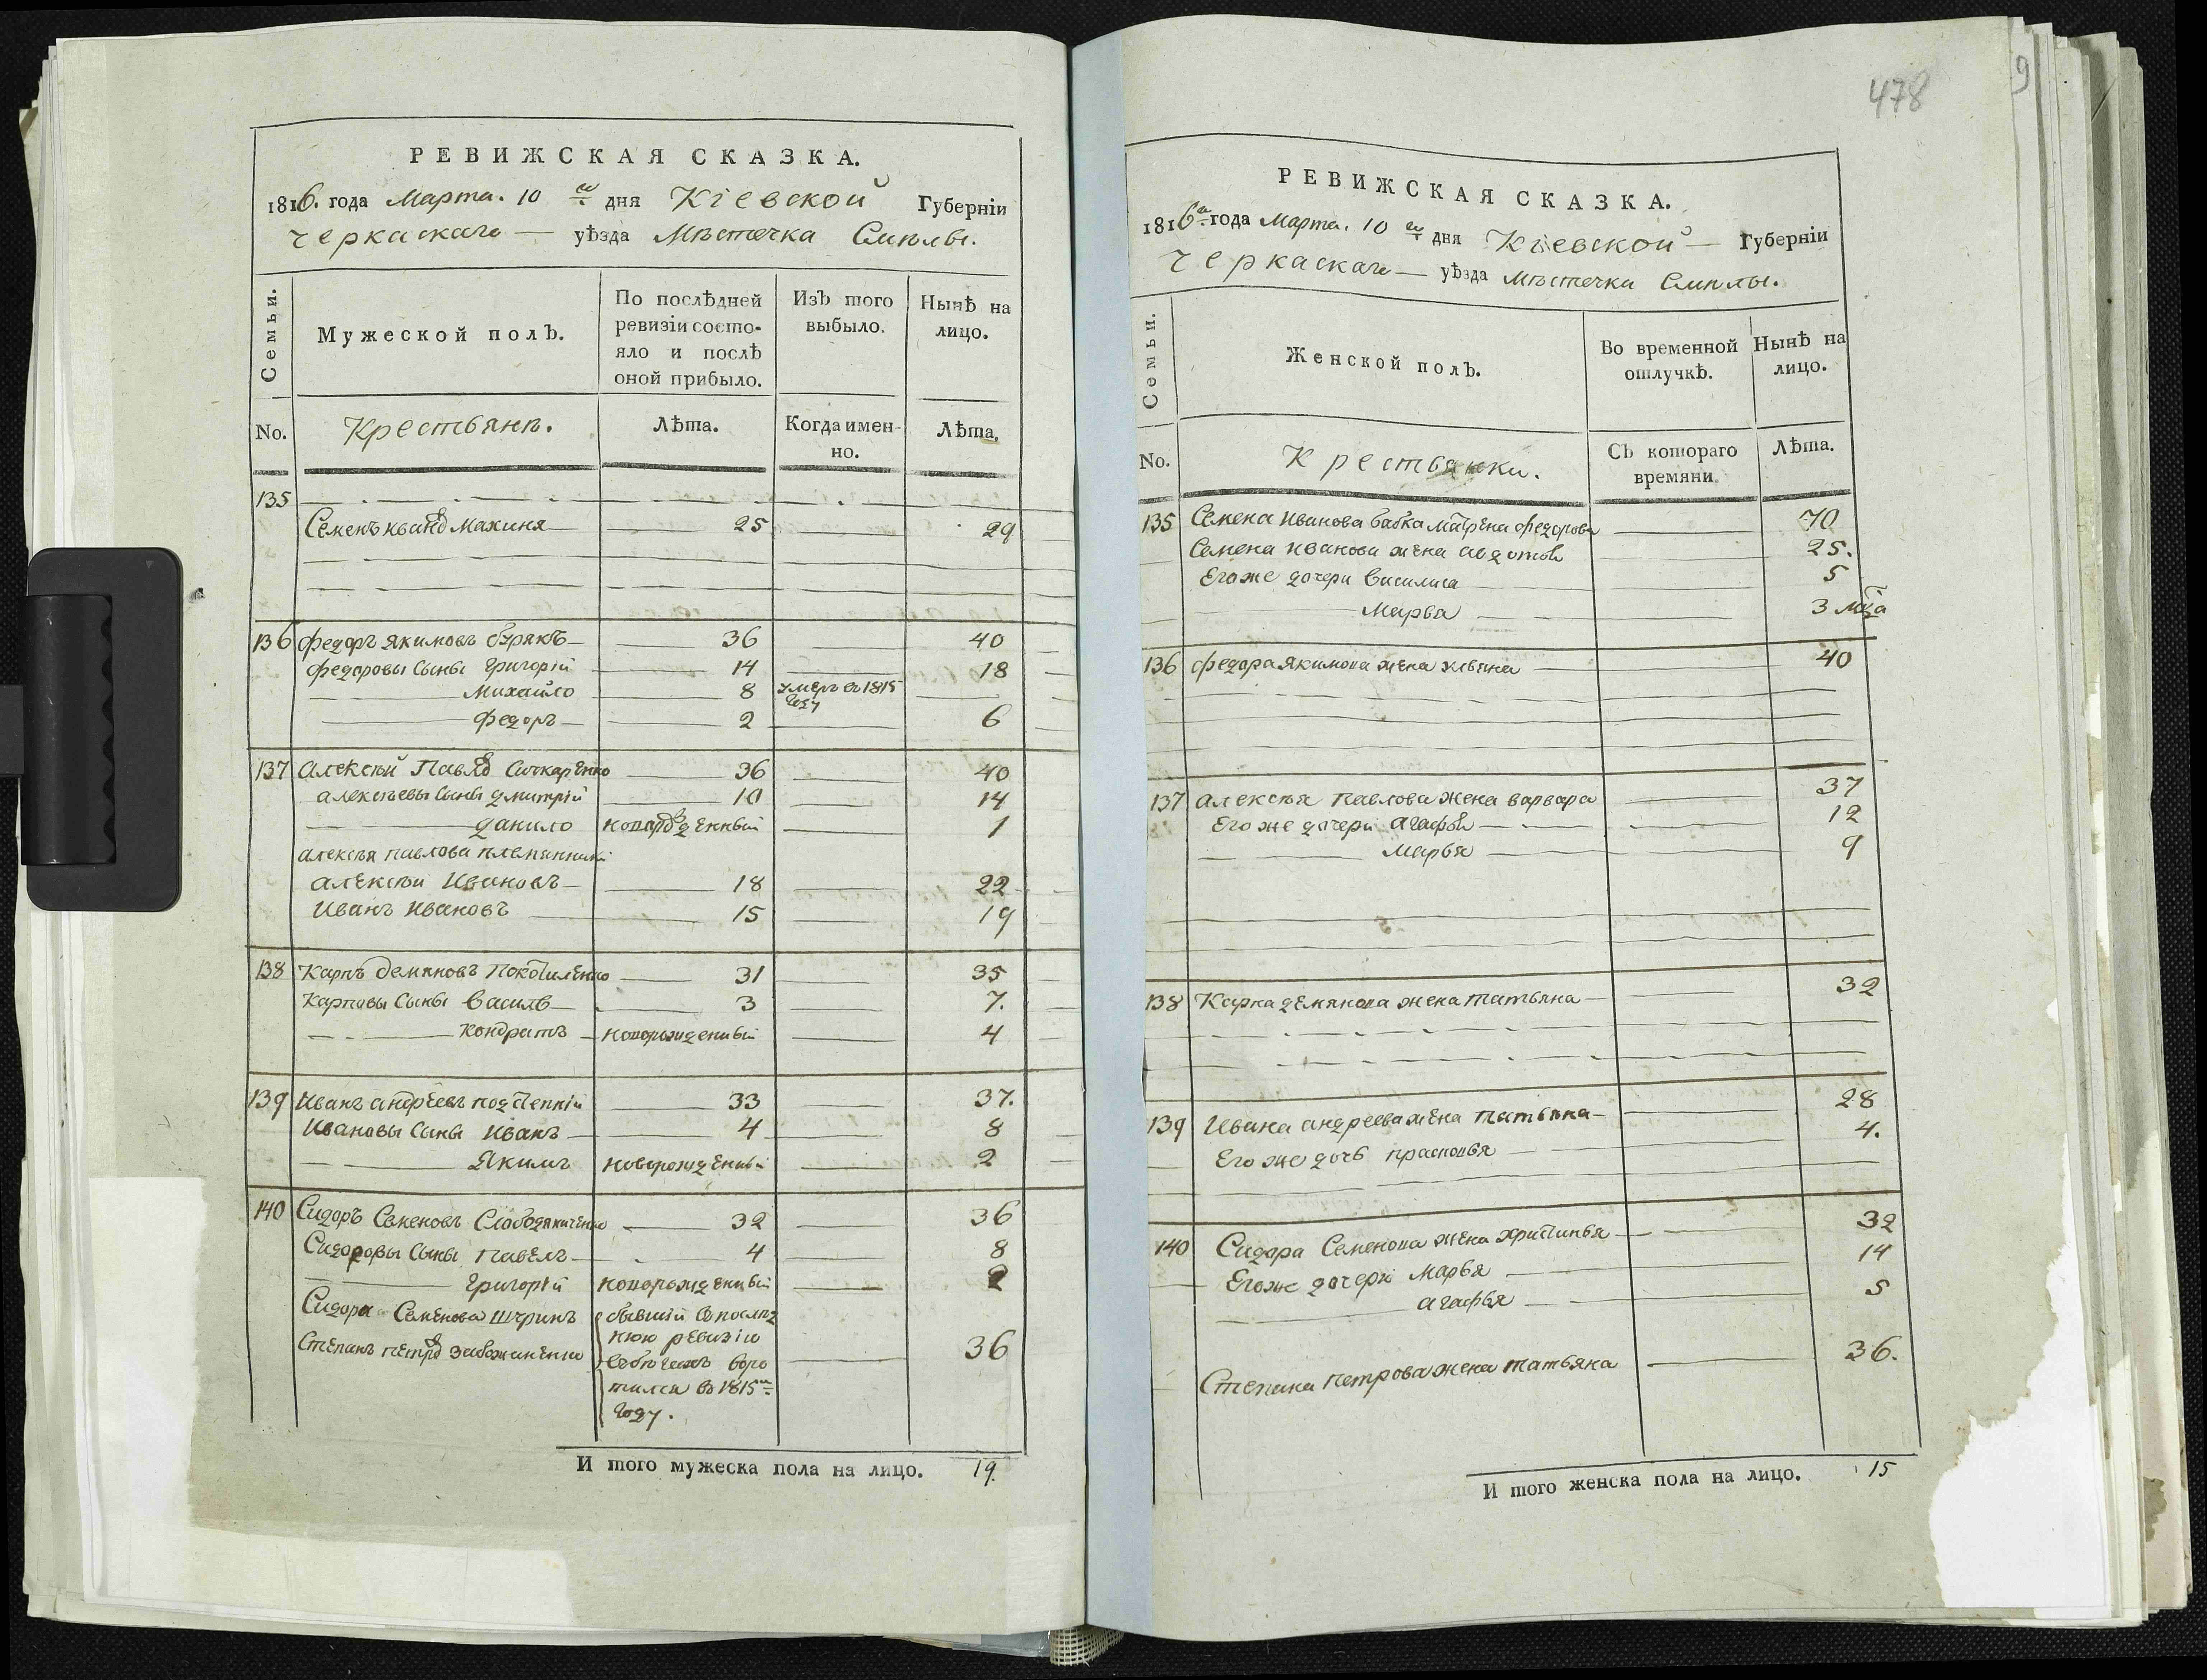 РЕВИЖСКАЯ СКАЗКА.
1816. года Марта. 10 го дня Кіевской Губерніи
Черкаскаго — уѣзда Мѣстечка Смѣлы.
Семьи.
Мужеской полЪ.
По послѣдней
ревизіи состо-
яло и послѣ
оной прибыло.
ИзЪ того
выбыло.
Нынѣ на
лицо.
No.
Крестьянъ.
Лѣта.
Когда имен-
но.
Лѣта.
135
Семенъ Иванов Махиня 25 29
136 Федоръ Якимовъ 36 40
Федоровы Сыны Григорій 14 18
Михайло 8 умеръ въ 1815 году
Федоръ 2 6
137 Алексѣй Павлов Сичкаренко 36 40
Алексѣевы Сыны Дмитрій 10 14
Данило новорожденный 1
Алексѣя Павлова племянники
Алексѣй Ивановъ 18 22
Иванъ Ивановъ 15 19
138 Карпъ Демяновъ Покотиленко 31 35
Карповы Сыны Василь 3 7.
Кондратъ новорожденный 4
139 Иванъ Андреевъ 33 37.
Ивановы Сыны Иванъ 4 8
Якимъ новорожденный 2
140 Сидоръ Семеновъ 32 36
Сидоровы Сыны Павелъ 4 8
Григорій новорожденный 2
Сидора Семенова Шуринъ бывшій въ послѣд
Степанъ Петров нюю ревизію
въ бѣгахъ воро 36
тился въ 1815м
году.
И того мужеска пола на лицо. 19.
478
9
РЕВИЖСКАЯ СКАЗКА.
1816го года Марта. 10 го дня Кіевской — Губерніи
Черкаскаго — уѣзда Мѣстечка Смѣлы.
Семьи.
Женской полЪ.
Во временной
отлучкѣ.
Нынѣ на
лицо.
No.
Крестьянки.
СЪ котораго
времяни.
Лѣта.
135 Семена Иванова бабка Матрена Федорова 70
Семена Иванова жена Авдотья 25.
Его же дочери Василиса 5
Марва 3 мца
136 Федора Якимова жена 40
137 Алексѣя Павлова жена Варвара 37
Его же дочери Агафья 12
Марья 9
138 Карпа Демянова жена Татьяна 32
139 Ивана Андреева жена Татьяна 28
Его же дочь Прасковья 4.
140 Сидора Семенова жена Христинья 32
Его же дочери Марья 14
Агафья 5
Степана Петрова жена Татьяна 36.
И того женска пола на лицо. 15